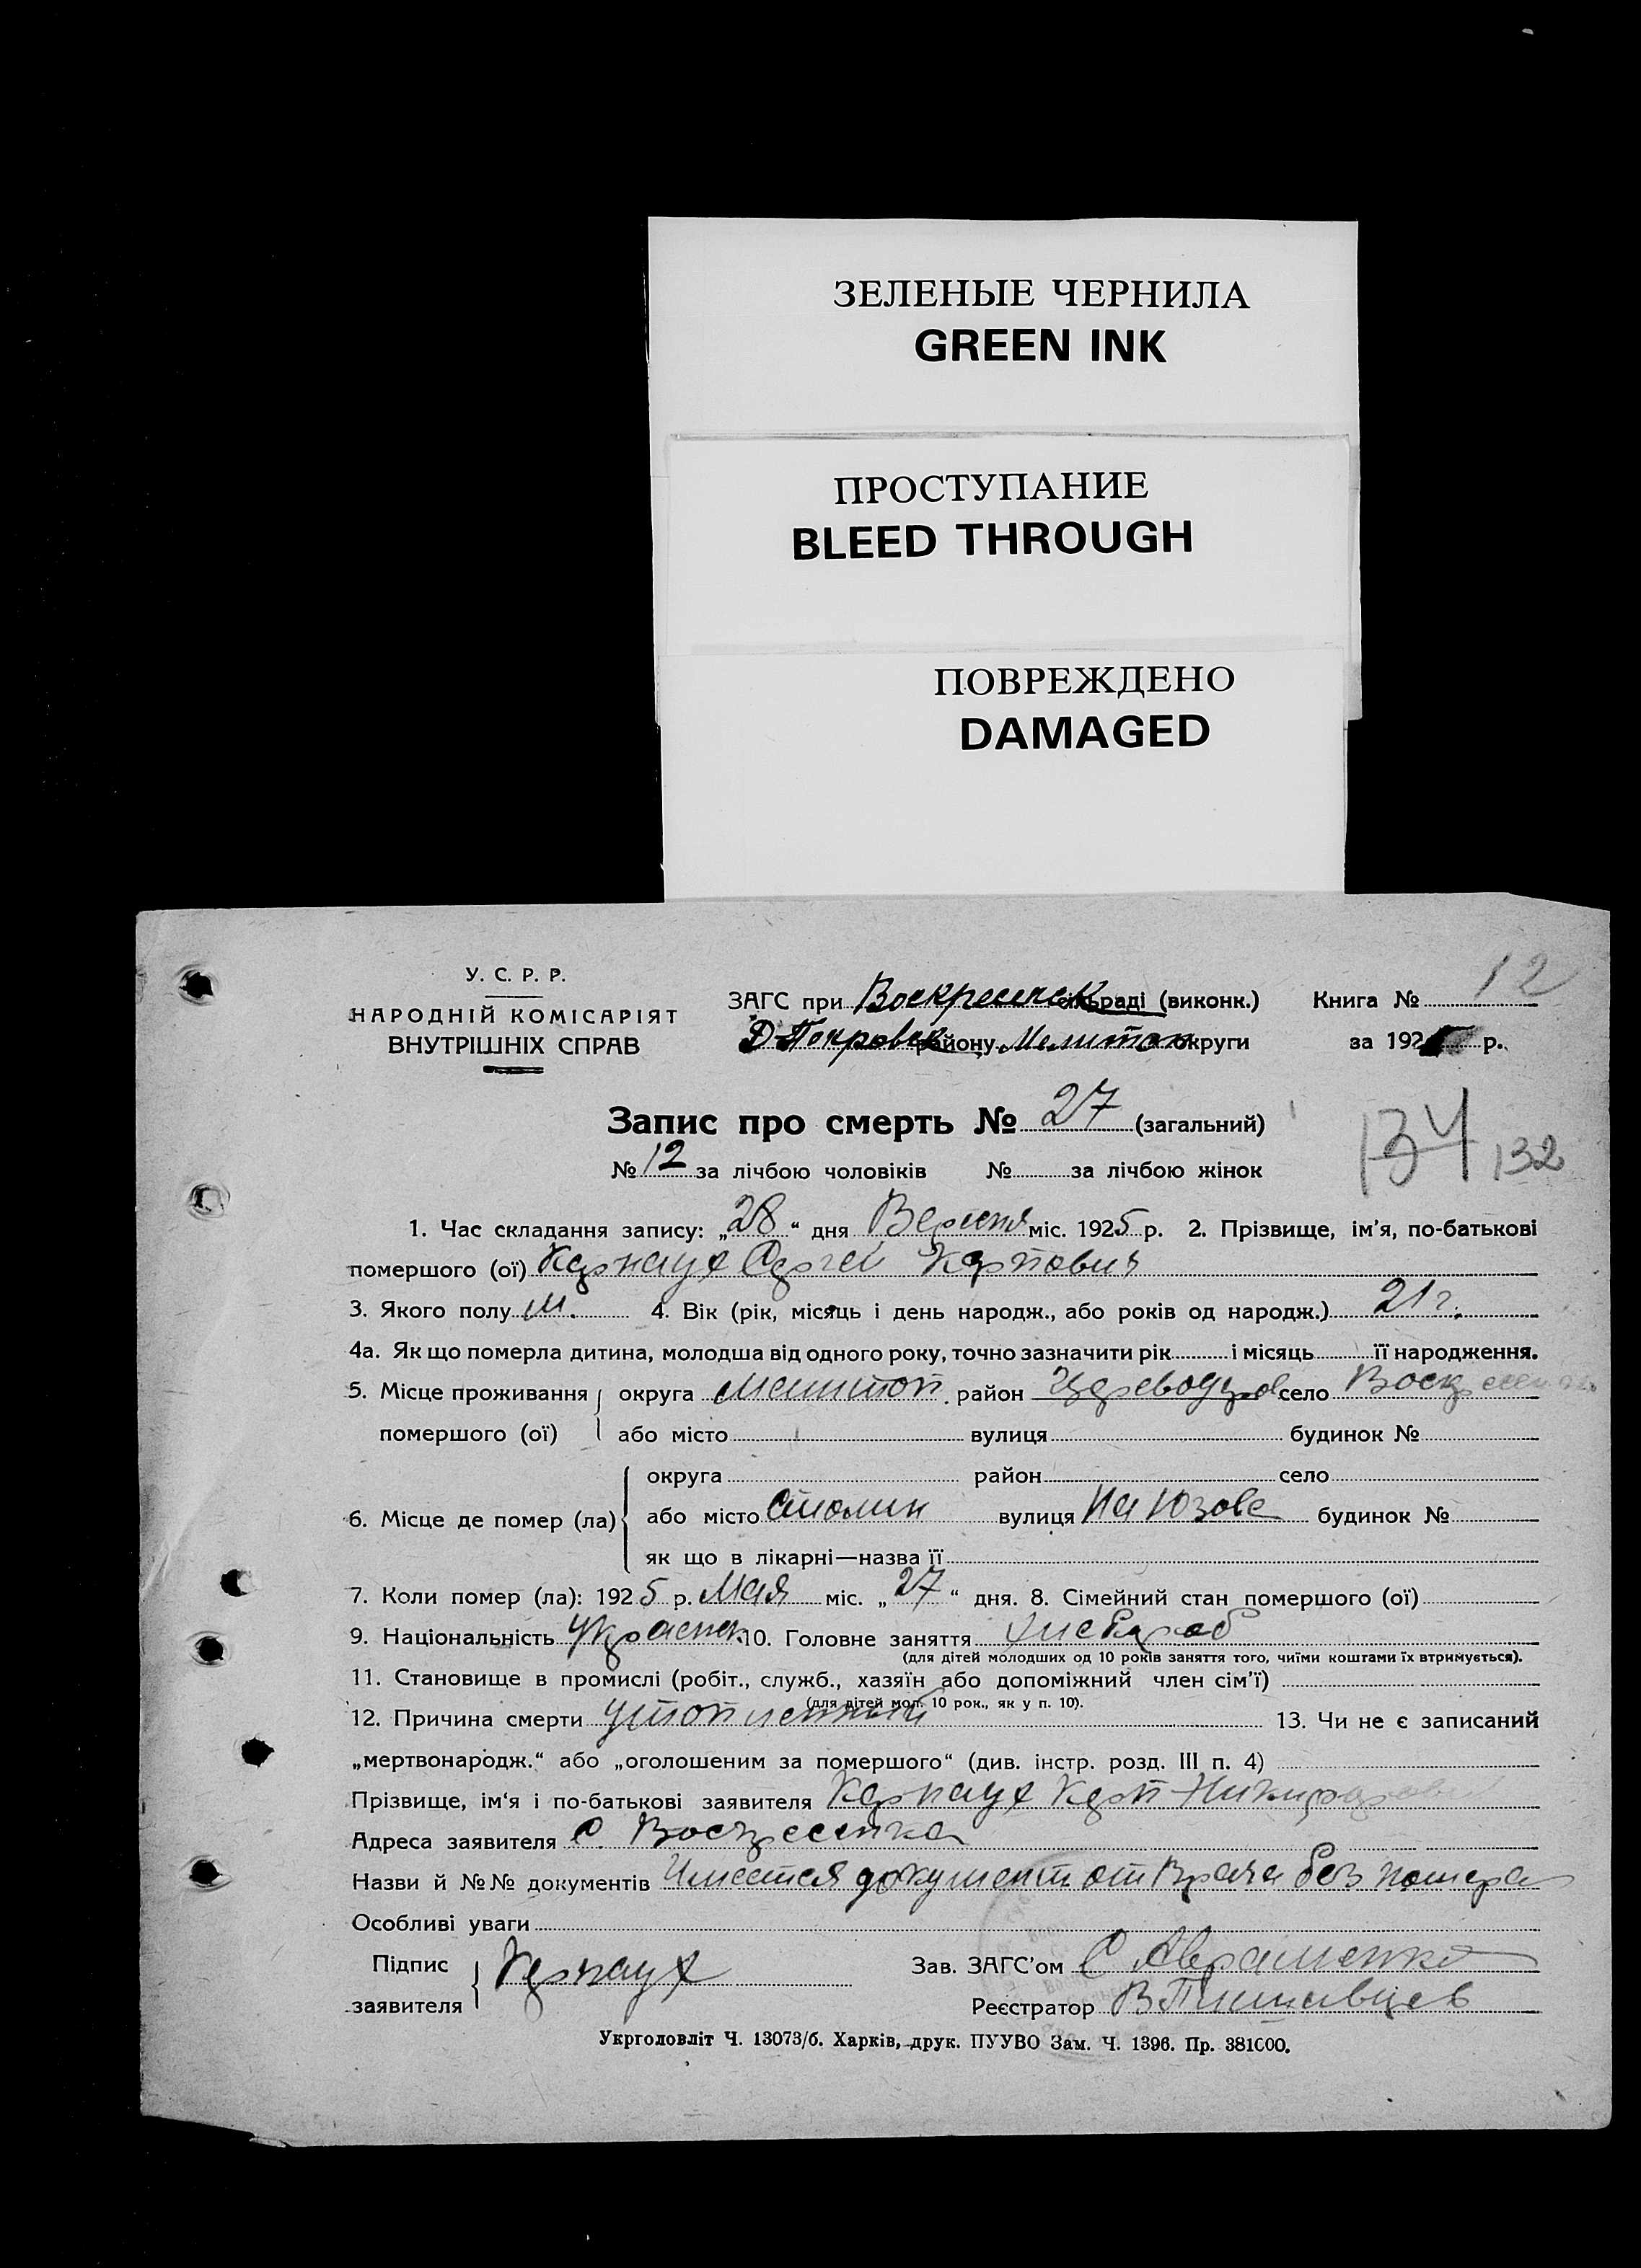 ЗЕЛЕНЫЕ ЧЕРНИЛА
GREEN INK
ПРОСТУПАНИЕ
BLEED THROUGH
ПОВРЕЖДЕНО
DAMAGED
У. С. Р. Р.
НАРОДНІЙ КОМІСАРІЯТ
ВНУТРІШНІХ СПРАВ
ЗАГС при Воскресенск сільраді (виконк.)
Д-Покровск району Мелитоп округи
Книга № 12
за 1925 р.
Запис про смерть № 27 (загальний)
№ 12 за лічбою чоловіків № за лічбою жінок
134 132
1. Час складання запису: „28“ дня Вересня міс. 1925 р. 2. Прізвище, ім’я, по-батькові
помершого (ої) Карнаух Сергей Карпович
3. Якого полу м. 4. Вік (рік, місяць і день народж., або років од народж.) 21 г.
4а. Як що померла дитина, молодша від одного року, точно зазначити рік і місяць її народження.
5. Місце проживання округа Мелитоп. район село Воскресенка
помершого (ої) або місто вулиця будинок №
округа район село
6. Місце де помер (ла) або місто Сталин вулиця На Юзове будинок №
як що в лікарні—назва її
7. Коли помер (ла): 1925 р. Мая міс. „27“ дня. 8. Сімейний стан помершого (ої)
9. Національність 10. Головне заняття хлебороб
(для дітей молодших од 10 років заняття того, чиїми коштами їх втримується).
11. Становище в промислі (робіт., служб., хазяїн або допоміжний член сім’ї)
(для дітей мол. 10 рок., як у п. 10).
12. Причина смерти утопленный 13. Чи не є записаний
„мертвонародж.“ або „оголошеним за помершого“ (див. інстр. розд. III п. 4)
Прізвище, ім‘я і по-батькові заявителя Карнаух Карп
Адреса заявителя С. Воскресенка
Назви й №№ документів Имеется документ от врача без номера
Особливі уваги
Підпис
заявителя Карнаух
Зав. ЗАГС’ом С Авраменко
Реєстратор В
Укрголовліт Ч. 13073/б. Харків, друк. ПУУВО Зам. Ч. 1396. Пр. 381000.